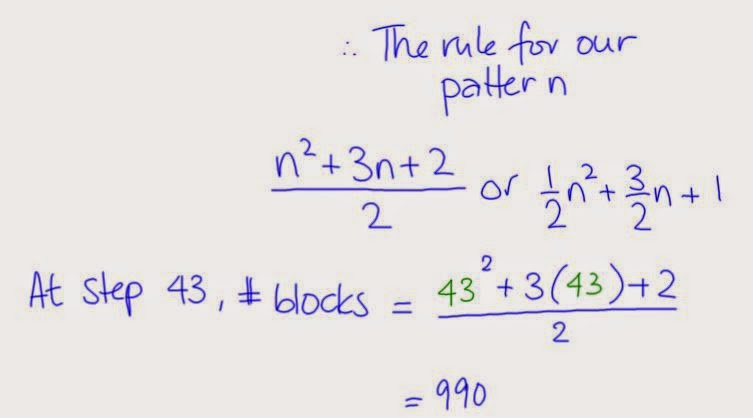 ∴ The rule for our
pattern
n²+3n+2/2 or 1/2n²+3/2n+1
At step 43, # blocks = 43²+3(43)+2/2
= 990